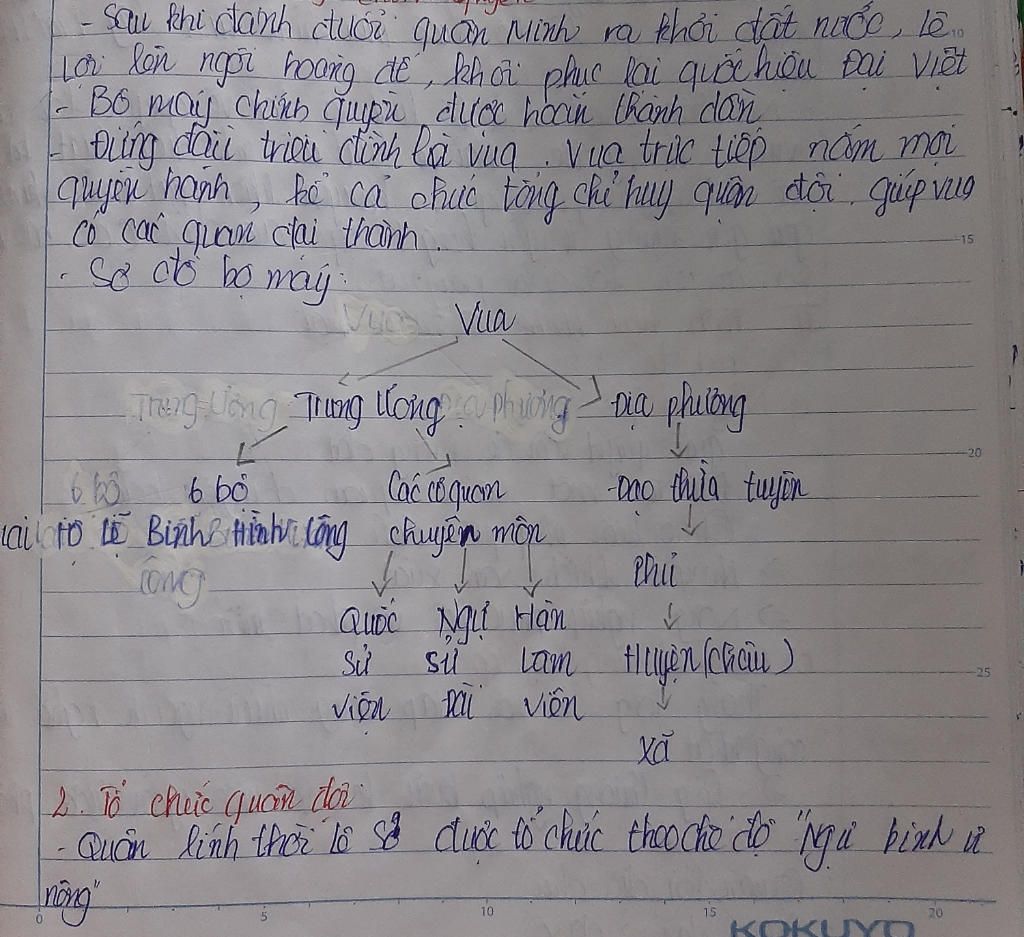 - Sau khi đánh đuổi quân Minh ra khỏi đất nước, Lê
Lợi lên ngôi hoàng đế, khôi phục lại quốc hiệu Đại Việt
- Bộ máy chính quyền được hoàn thành dần
- Đứng đầu triều đình là vua. Vua trực tiếp nắm mọi
quyền hành, kể cả chức tổng chỉ huy quân đội. giúp vua
có các quan đại thành.
- Sơ đồ bộ máy:
Vua Vua
Trung Ương Trung Ương Địa Phương Địa phương
6 bộ 6 bộ Các cơ quan Đạo thừa tuyên
Lại Hộ Lễ Binh Hình Công chuyên môn
Công Phủ
Quốc Ngự Hàn
sử sử Lâm Huyện (Châu)
viện Đài viện
Xã
2. Tổ chức quân đội
- Quân lính thời Lê Sơ được tổ chức theo chế độ "Ngụ binh ư
nông"
0 5 10 15 20
10
15
20
25
KOKUYO